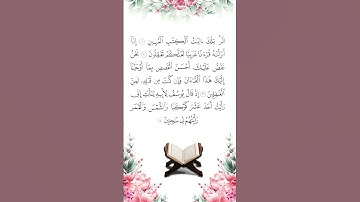 الٓر ۚ تِلْكَ ءَايَـٰتُ ٱلْكِتَـٰبِ ٱلْمُبِينِ ١ إِنَّآ
أَنزَلْنَـٰهُ قُرْءَٰنًا عَرَبِيًّا لَّعَلَّكُمْ تَعْقِلُونَ ٢ نَحْنُ
نَقُصُّ عَلَيْكَ أَحْسَنَ ٱلْقَصَصِ بِمَآ أَوْحَيْنَآ
إِلَيْكَ هَـٰذَا ٱلْقُرْءَانَ وَإِن كُنتَ مِن قَبْلِهِۦ لَمِنَ
ٱلْغَـٰفِلِينَ ٣ إِذْ قَالَ يُوسُفُ لِأَبِيهِ يَـٰٓأَبَتِ إِنِّى
رَأَيْتُ أَحَدَ عَشَرَ كَوْكَبًا وَٱلشَّمْسَ وَٱلْقَمَرَ
رَأَيْتُهُمْ لِى سَـٰجِدِينَ ٤